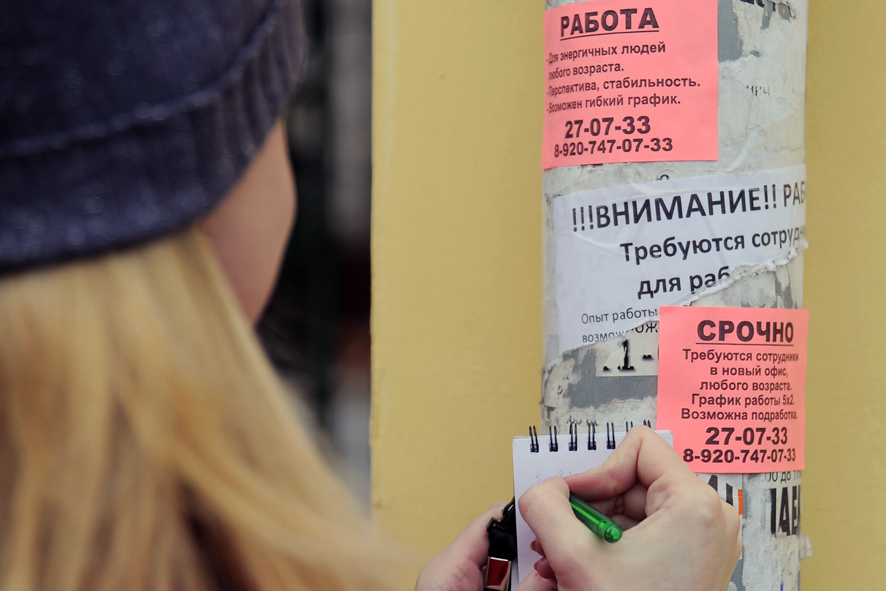 РАБОТА
-Для энергичных людей
любого возраста.
-Перспектива, стабильность.
-Возможен гибкий график.
27-07-33
8-920-747-07-33
!!!ВНИМАНИЕ!! РАБ
Требуются сотрудн
для раб
Опыт работы
СРОЧНО
Требуются сотрудники
в новый офис,
любого возраста.
График работы 5х2.
Возможна подработка.
27-07-33
8-920-747-07-33